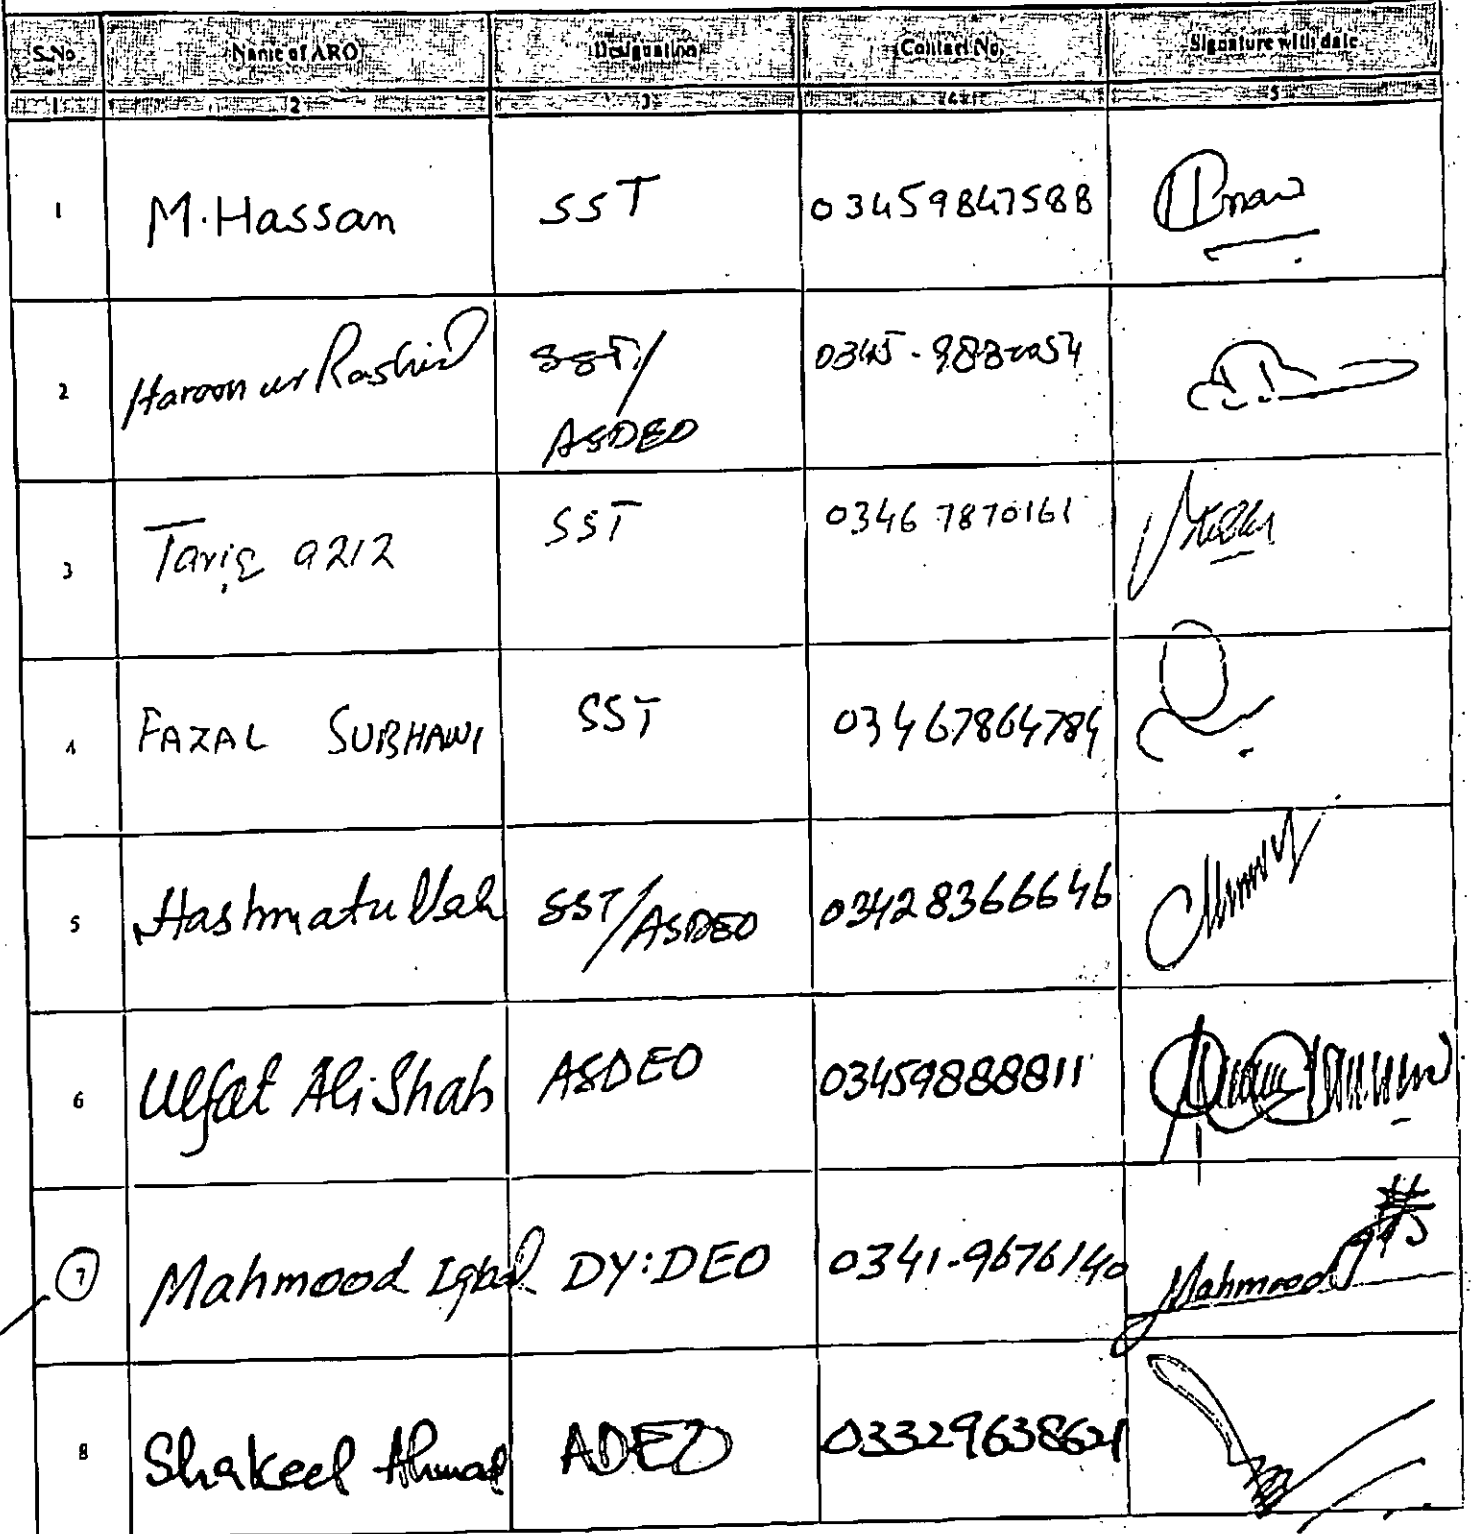 S.No Name of ARO Designation Contact No. Signature with date
1 2 3 4 5
1 M.Hassan SST 03459847588
2 Haroon ur Rashid SST/
ASDEO
3 Tariq aziz SST 0346 7870161
4 FAZAL SUBHANI SST 03467864784
5 Hashmatullah SST/ASDEO 03428366646
6 Ulfat Ali Shah ASDEO 03459888811
7 Mahmood Iqbal DY:DEO 0341-9676140 Mahmood
8 Shakeel Ahmad ADEO 03329638621